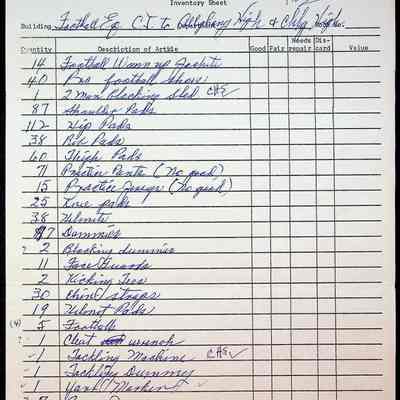 Inventory Sheet
Building Football Eq. C.I. to High & High
Quantity Description of Article Good Fair Needs repair Dis-card Value
14 Football Warm up Jackets
40 Pro football shoes
1 2 Man Blocking Sled CHS
87 Shoulder Pads
112 Hip Pads
38 Rib Pads
60 Thigh Pads
71 Practice Pants (No good)
15 Practice Jerseys (No good)
25 Knee pads
38 Helmets
7 Dummies
? 2 Blocking dummies
11 Face Guards
2 Kicking Tees
30 Chin straps
19 Helmet Pads
(4) 5 Football
? 1 Cleat wrench
1 Tackling Machine CHS
1 Tackling Dummy
1 Yard Marker